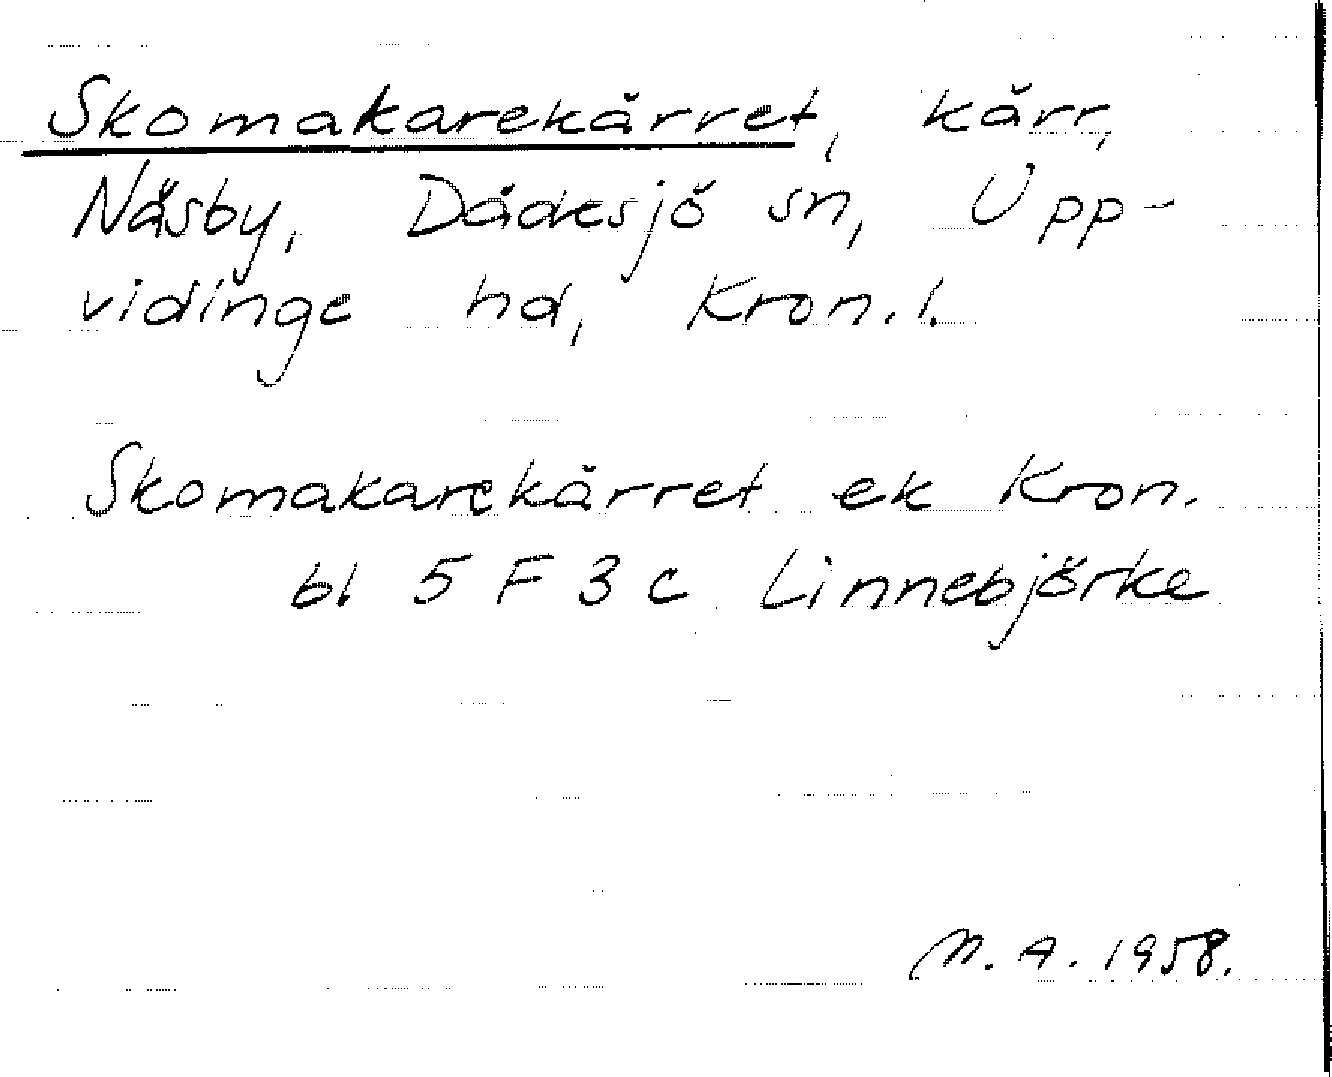 Skomakarekärret, kärr,
Näsby, Dädesjö sn, Upp-
vidinge hd, Kron. l.
Skomakarekärret ek Kron.
bl 5 F 3 c Linnebjörke
M. A. 1958.